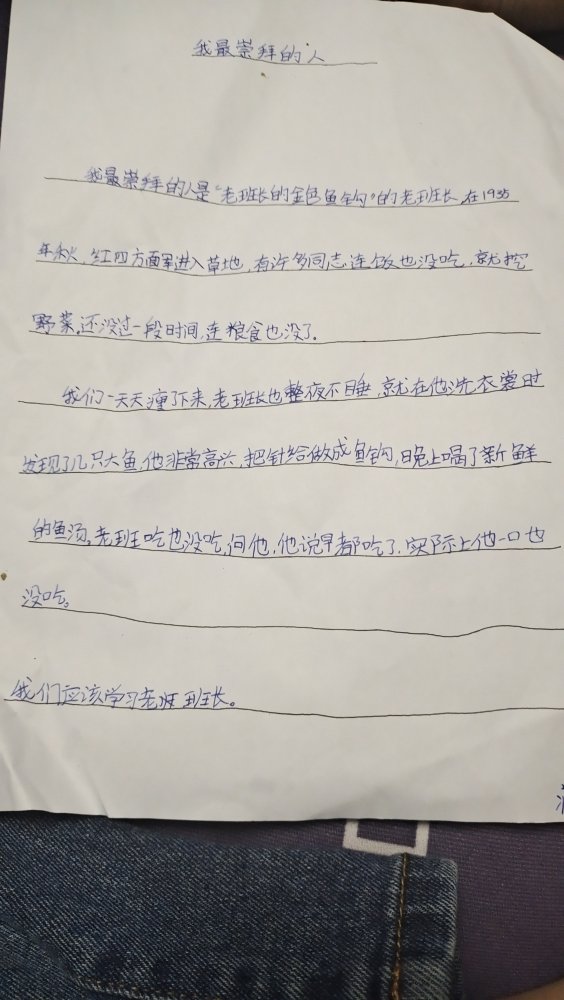 我最崇拜的人
我最崇拜的人是"老班长的金色鱼钩"的老班长.在1935
年秋,红四方面军进入草地,有许多同志连饭也没吃,就挖
野菜.还没过一段时间,连粮食也没了.
我们一天天瘦下来,老班长也整夜不睡,就在他洗衣裳时
发现了几只大鱼,他非常高兴,把针给做成鱼钩,晚上喝了新鲜
的鱼汤,老班吃也没吃,问他,他说早都吃了.实际上他一口也
没吃。
我们应该学习老班长。